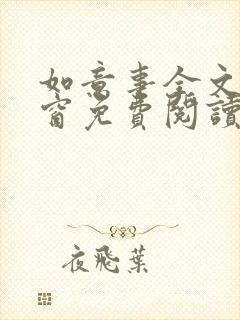 如意事全文
窗免費閱讀
夜飛葉